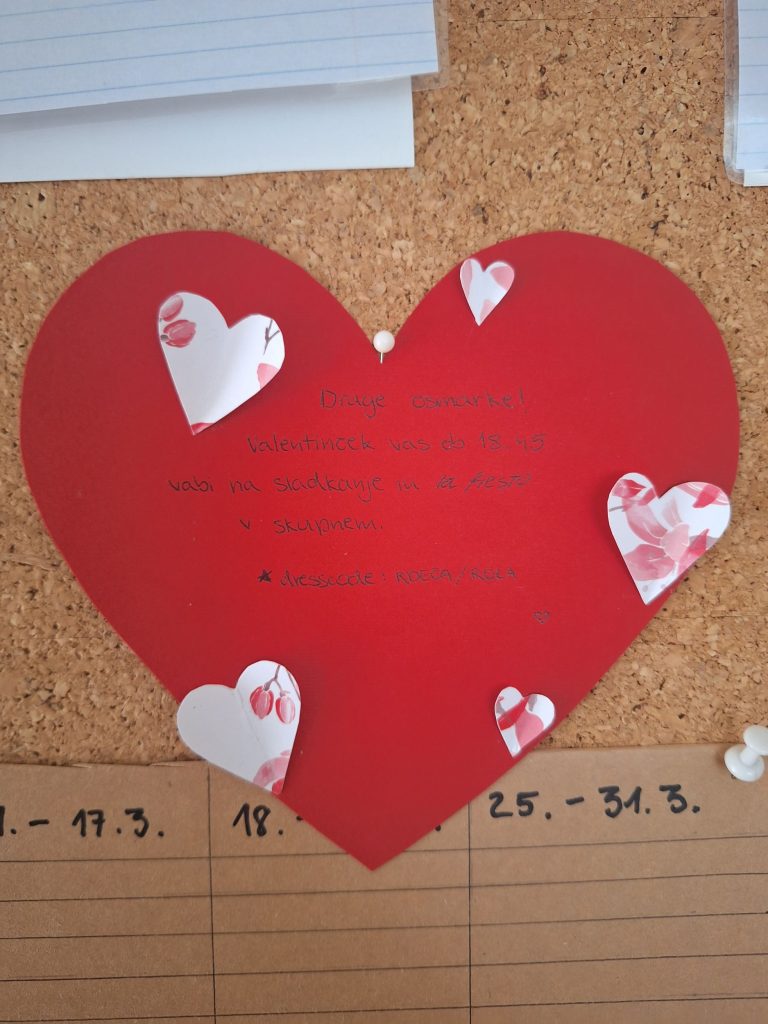 Drage osmarke!
Valentinček vas ob 18.45
vabi na sladkanje in la fiesto
v skupnem.
* dresscode: RDEČA/ROZA
- 17.3.
18.
25. - 31.3.